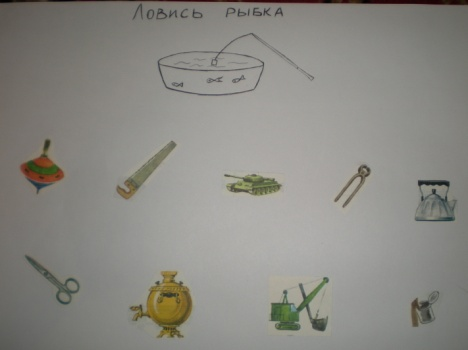 Ловись рыбка